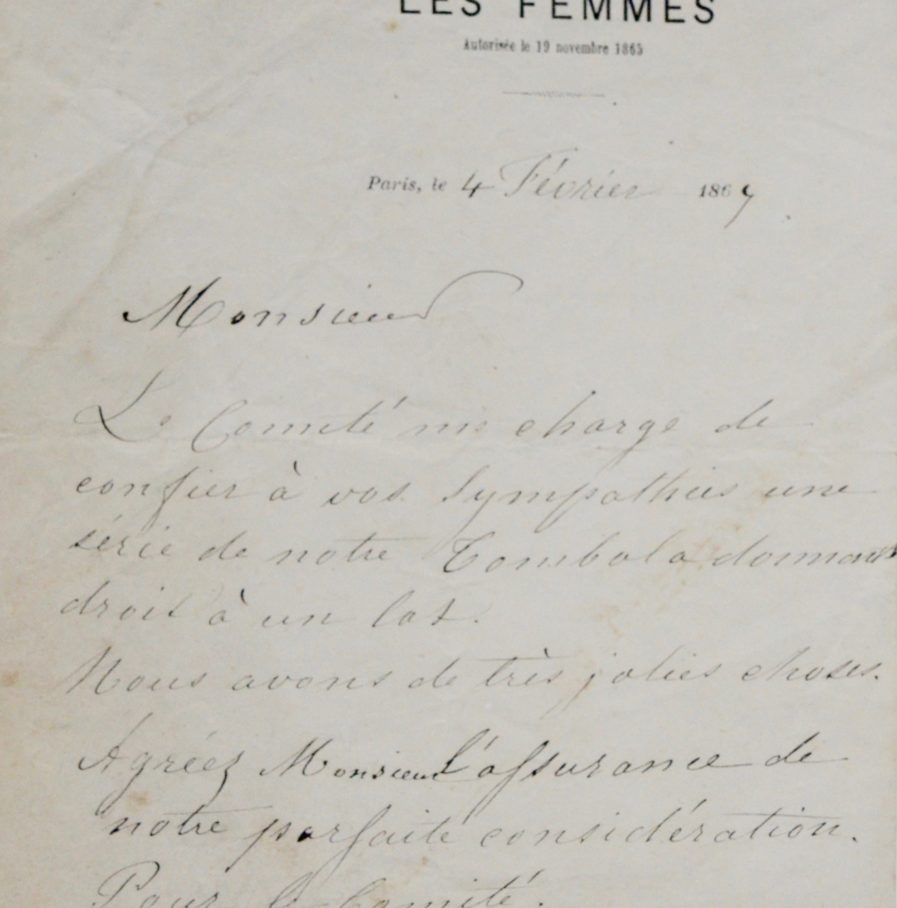 LES FEMMES
Autorisée le 19 novembre 1865
Paris, le 4 Février 1867
Monsieur
Le Comité me charge de
confier à vos Sympathies une
série de notre Tombola donnant
droit à un lot.
Nous avons de très jolies choses.
Agréez Monsieur l'assurance de
notre parfaite considération.
Pour le Comité.